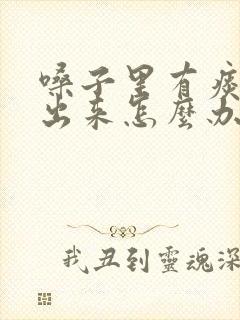 嗓子里有痰
出来怎麼办
我丑到靈魂深